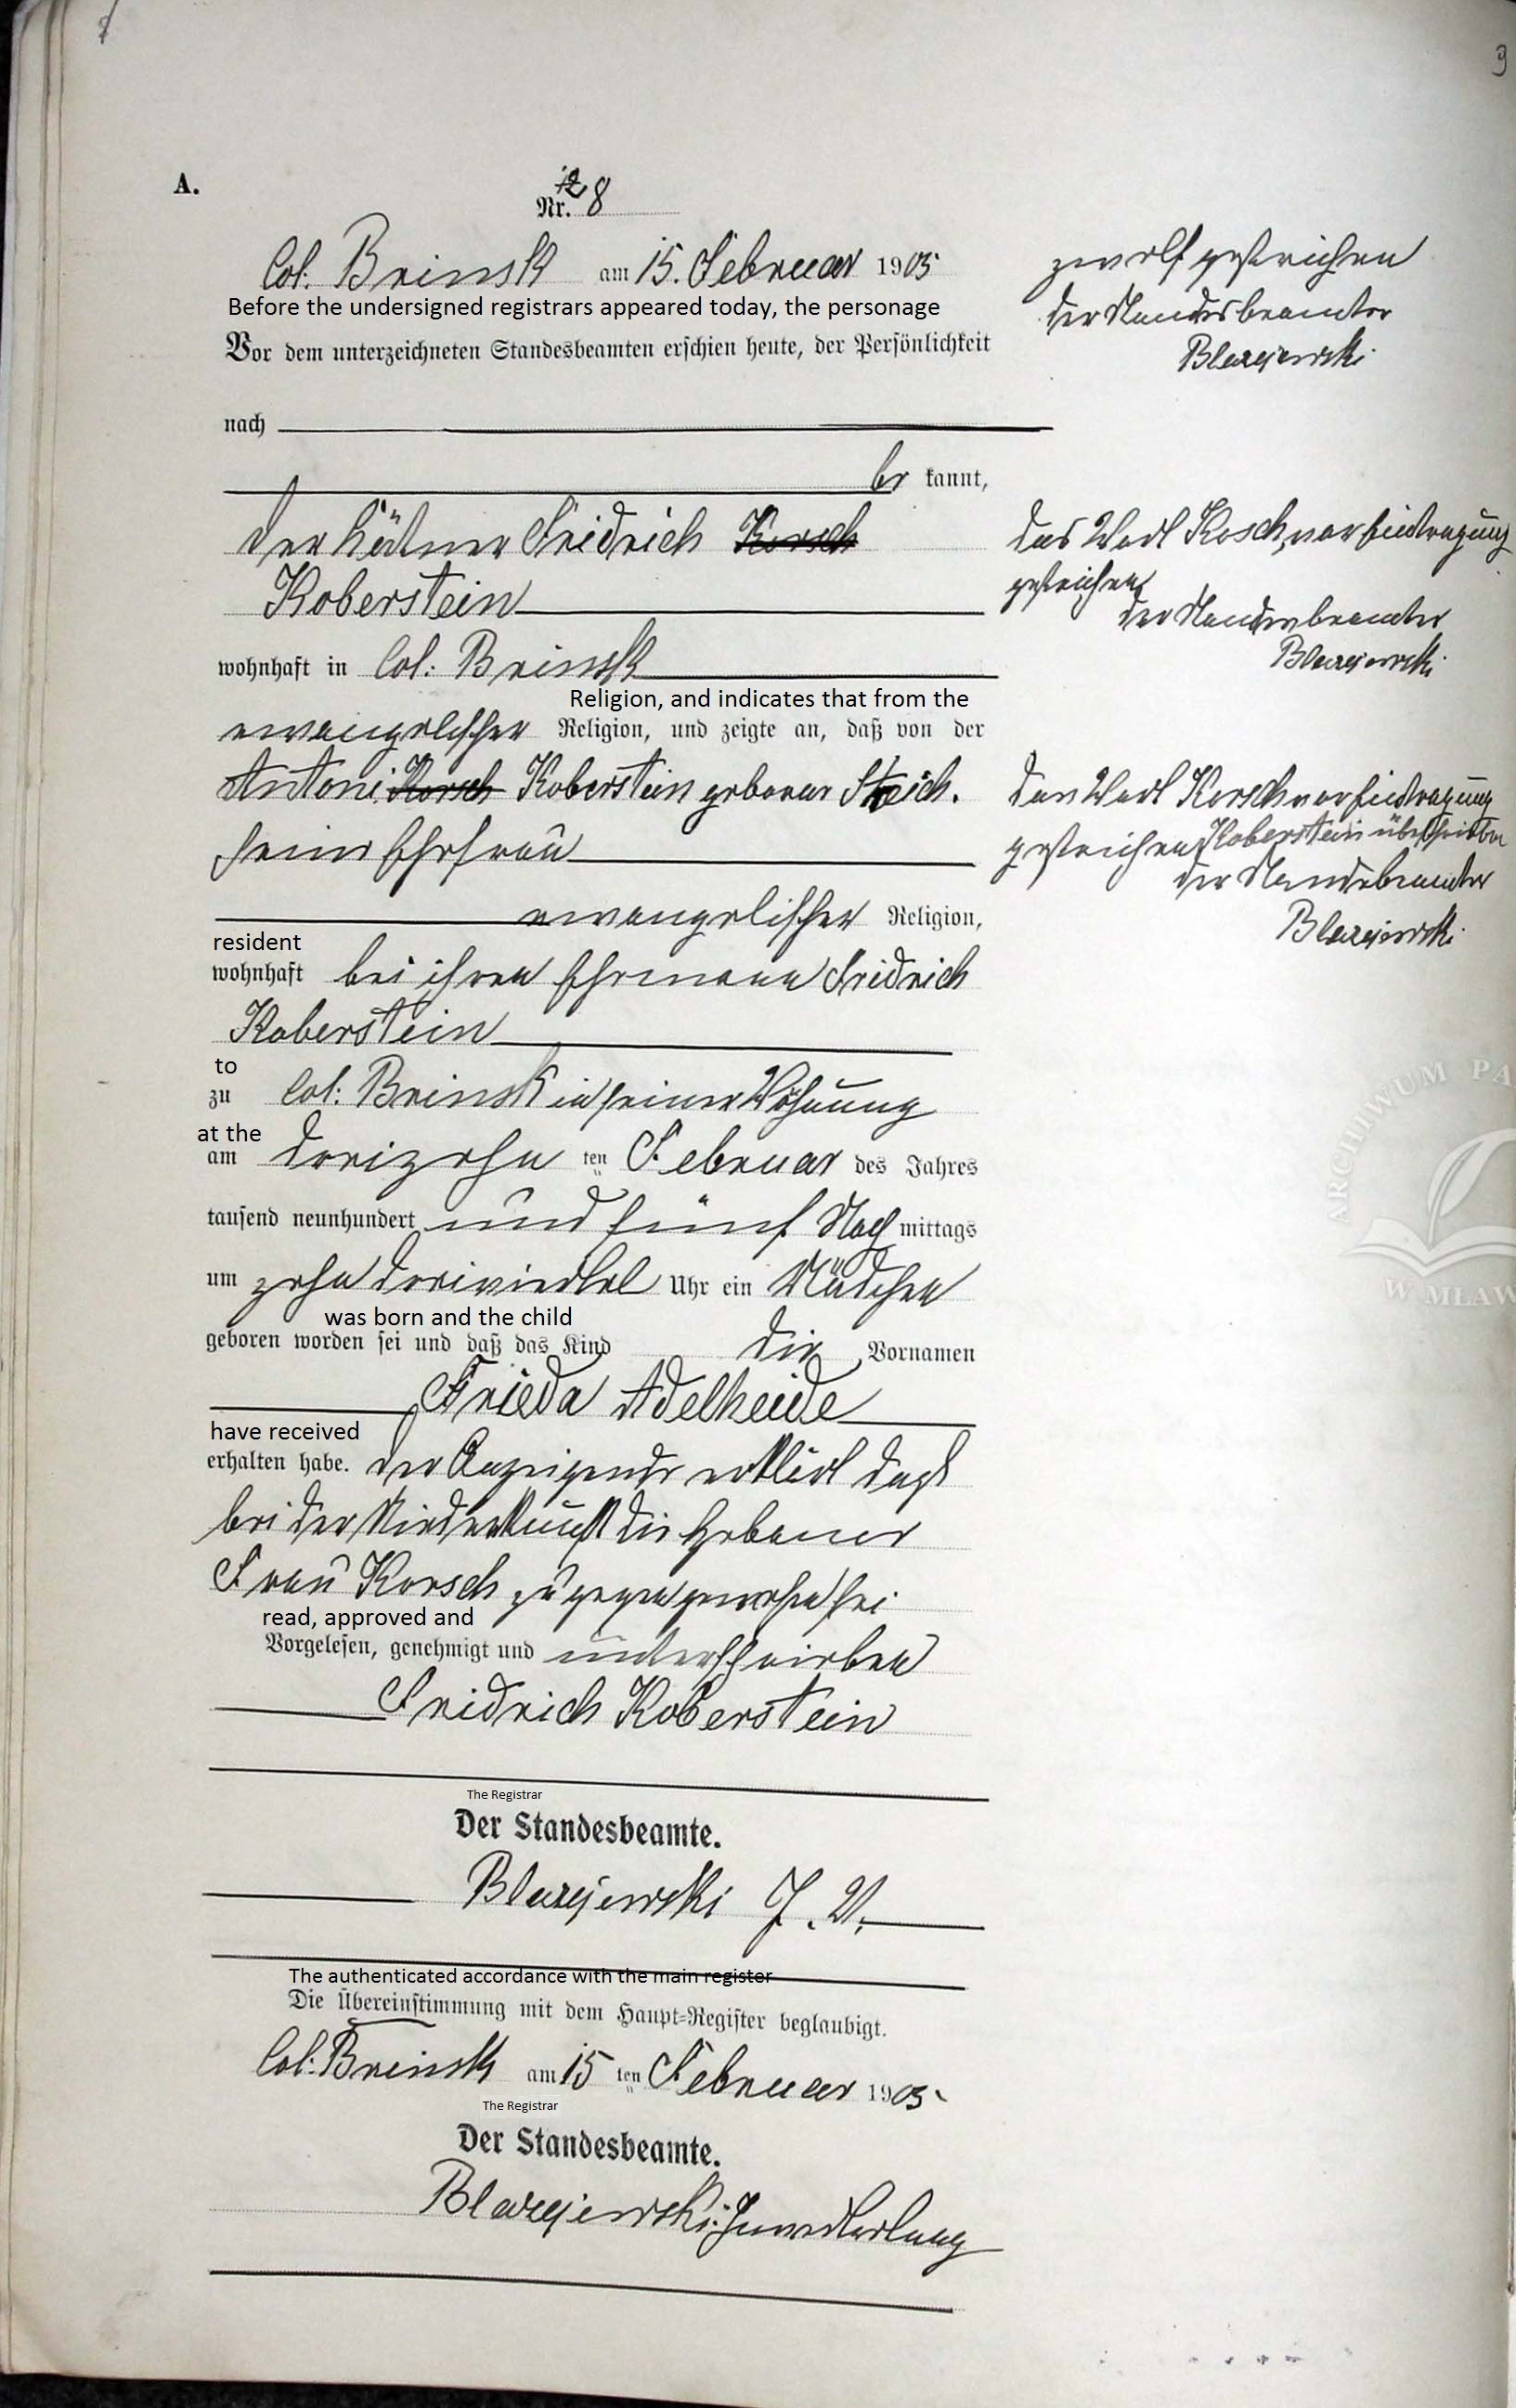 9
A.
12
Nr. 8
Col: Brinsk am 15. Februar 1905
Before the undersigned registrars appeared today, the personage
Vor dem unterzeichneten Standesbeamten erschien heute, der Persönlichkeit
nach
be kannt,
der Kätner Fridrich Korsch
Koberstein
wohnhaft in Col: Brinsk
Religion, and indicates that from the
ewangelischer Religion, und zeigte an, daß von der
Antoni Korsch Koberstein geborene Steich.
seine Ehefrau
ewangelischer Religion,
resident
wohnhaft bei ihren Ehemann Fridrich
Koberstein
to
zu Col: Brinsk in seiner Wohnung
at the
am dreizehn ten Februar des Jahres
tausend neunhundert und fünf Nach mittags
um zehn dreiviertel Uhr ein Mädchen
was born and the child
geboren worden sei und daß das Kind die Vornamen
Frieda Adelheide
have received
erhalten habe. der Anzeigende erklärt daß
bei der Niederkunft die Hebamer
Frau Korsch zugegen gewesen sei
read, approved and
Vorgelesen, genehmigt und unterschrieben
Fridrich Koberstein
The Registrar
Der Standesbeamte.
Blazejewski J. V.
The authenticated accordance with the main register
Die Übereinstimmung mit dem Haupt-Register beglaubigt.
Col: Brinsk am 15 ten Februar 1905
The Registrar
Der Standesbeamte.
Blazejewski
zwölf gestrichen
der Standesbeamter
Blazejewski
das Wort Kosch vor Eintragung
gestrichen
der Standesbeamter
Blazejewski
den Wort Korsch vor Eintragung
gestrichen Koberstein überschrieben
der Standesbeamter
Blazejewski
ARCHIWUM PA
W MŁAW